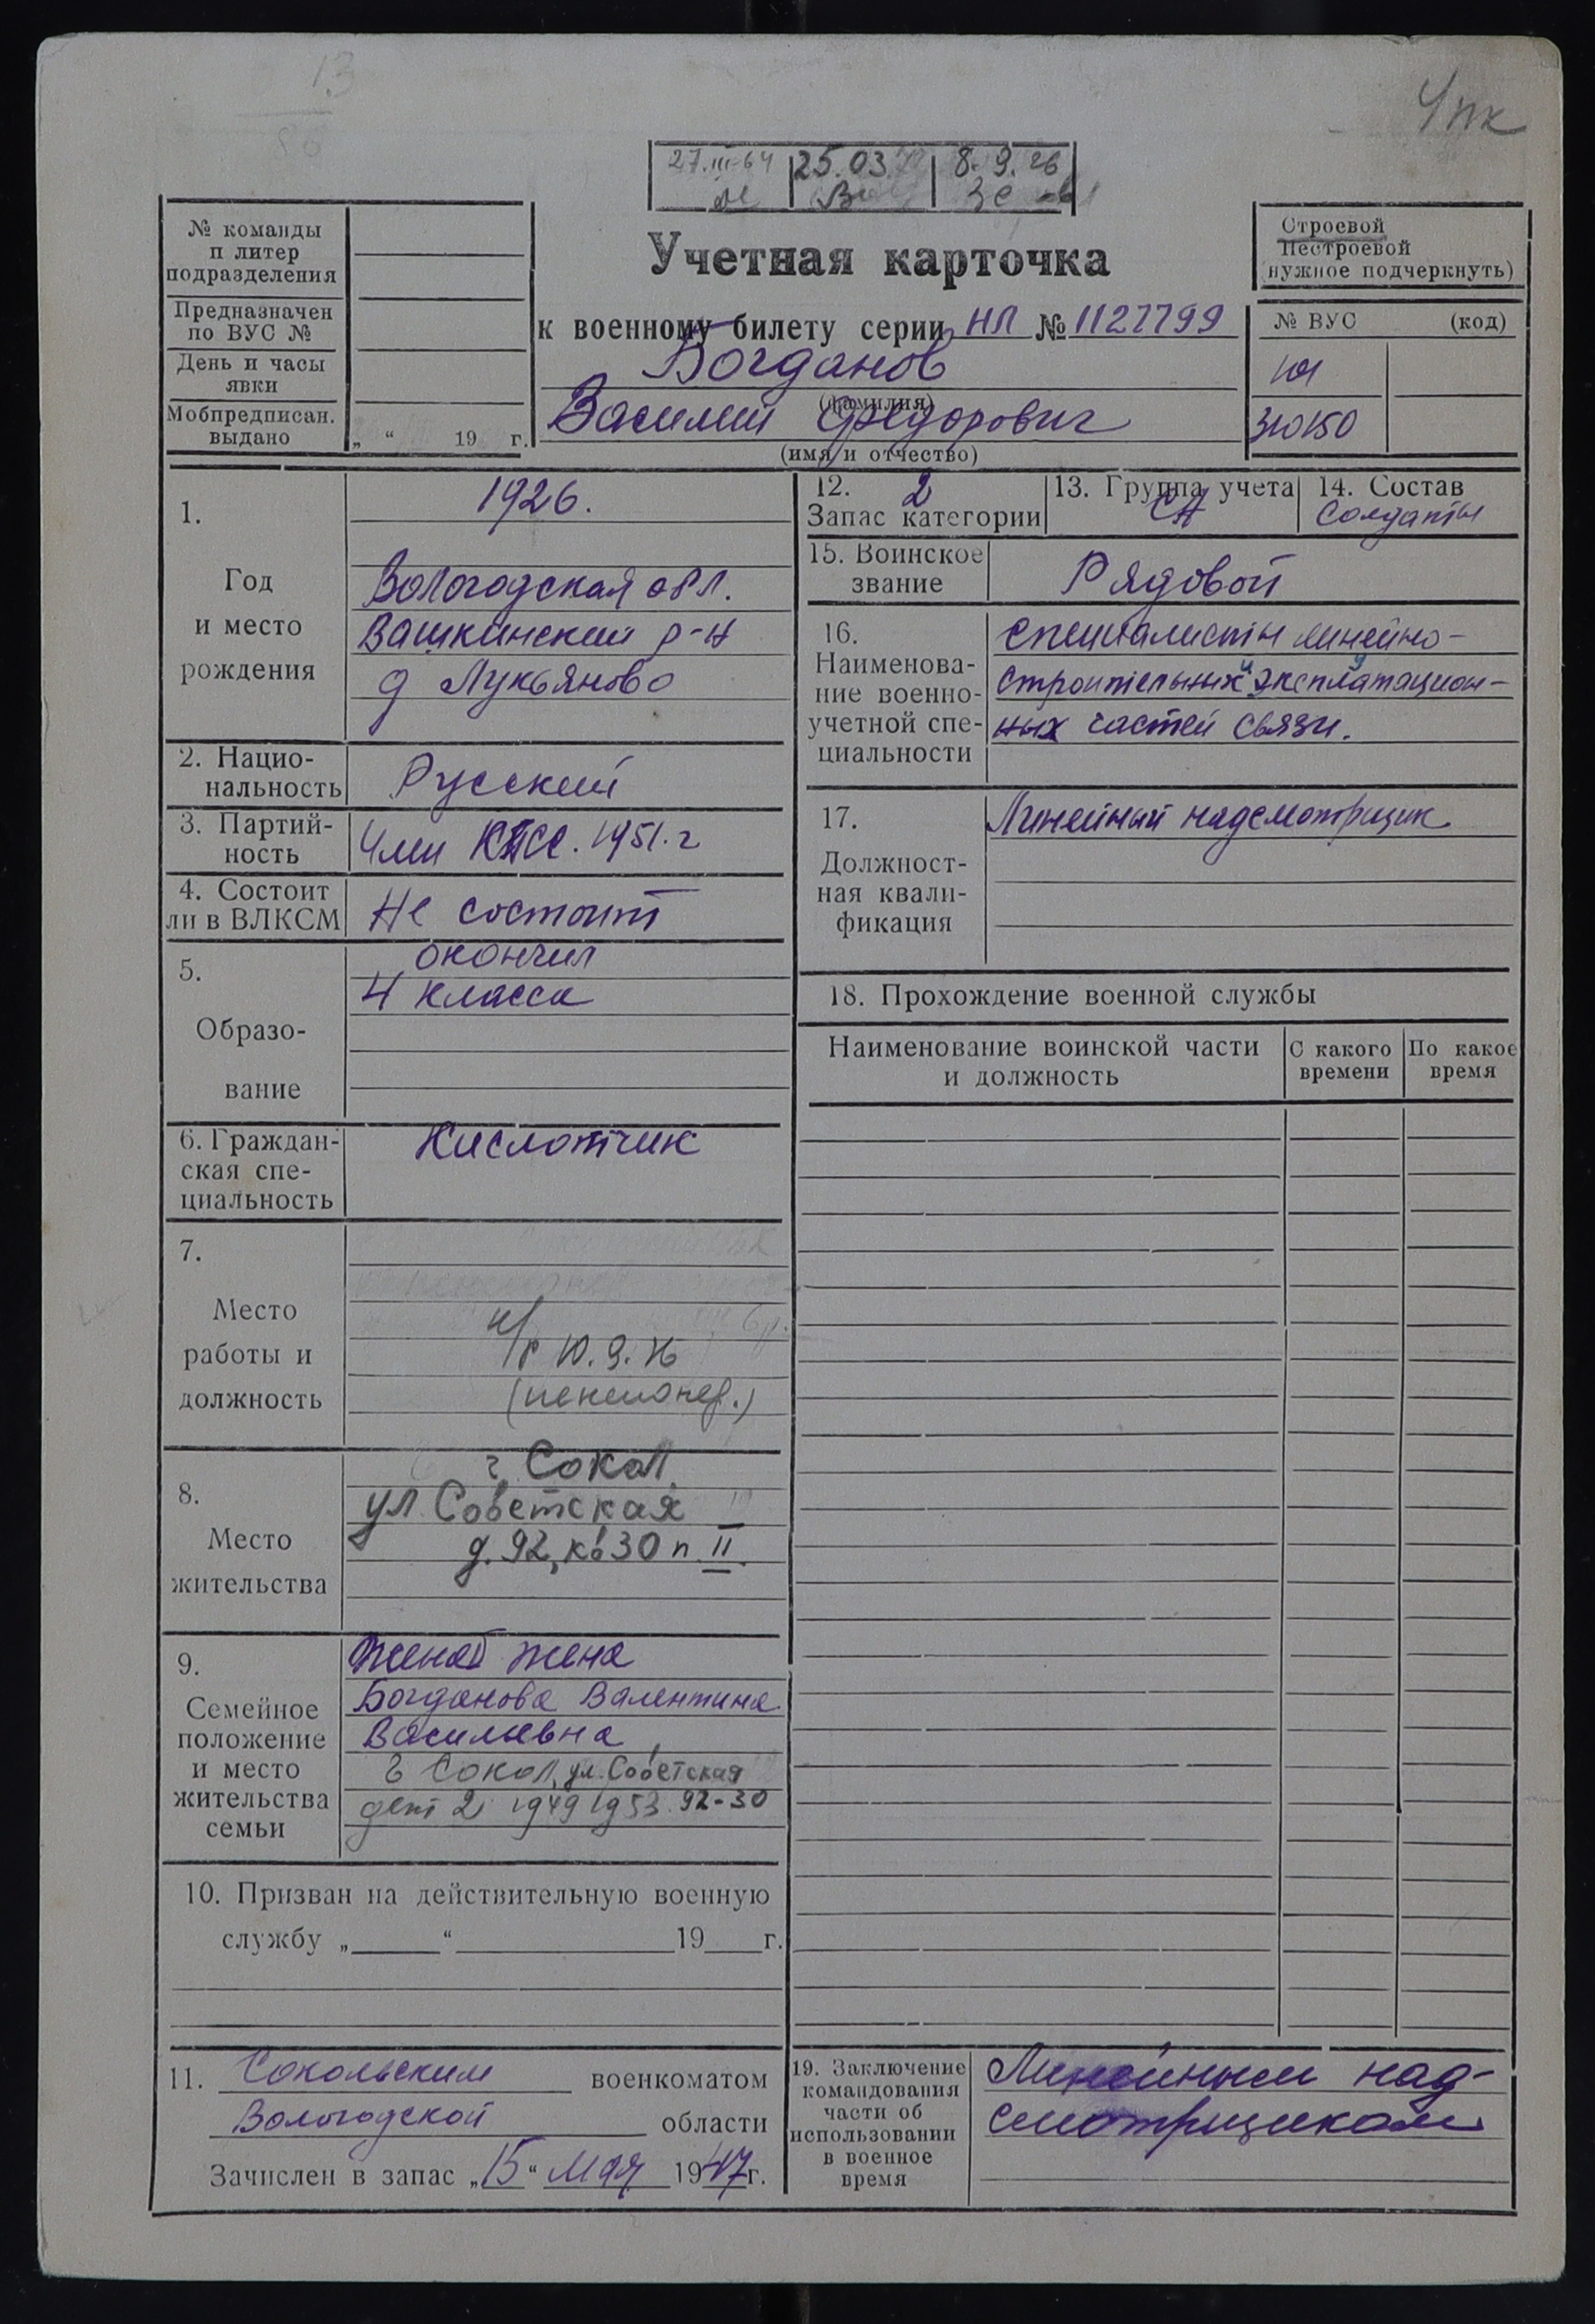 13
4 пк
27.III-64 25.03. 8.9.76
№ команды
п литер
подразделения
Предназначен
по ВУС №
День и часы
явки
Мобпредписан.
выдано
„ “ 19 г.
Учетная карточка
к военному билету серии НЛ № 1127799
Богданов
(фамилия)
Василий Федорович
(имя и отчество)
Строевой
Нестроевой
(нужное подчеркнуть)
№ ВУС (код)
101
310150
1.
Год
и место
рождения
1926.
Вологодская обл.
Вашкинский р-н
д Лукьяново
2. Нацио-
нальность
Русский
3. Партий-
ность
Член КПСС. 1951. г
4. Состоит
ли в ВЛКСМ
Не состоит
5.
Образо-
вание
окончил
4 класса
6. Граждан-
ская спе-
циальность
Кислотчик
7.
Место
работы и
должность
н/р 10.9.76
(пенсионер.)
8.
Место
жительства
г. Сокол
ул. Советская
д. 92, кв 30 п. II.
9.
Семейное
положение
и место
жительства
семьи
Женат жена
Богданова Валентина
Васильевна
г Сокол, ул. Советская
дети 2 1949 1953. 92-30
10. Призван на действительную военную
службу „ “ 19 г.
11. Сокольским военкоматом
Вологодской области
Зачислен в запас „15“ Мая 1947 г.
12. 2
Запас категории
13. Группа учета
СА
14. Состав
Солдаты
15. Воинское
звание
Рядовой
16.
Наименова-
ние военно-
учетной спе-
циальности
Специалисты линейно-
строительных и эксплуатацион-
ных частей связи.
17.
Должност-
ная квали-
фикация
Линейный надсмотрщик
18. Прохождение военной службы
Наименование воинской части
и должность
С какого
времени
По какое
время
19. Заключение
командования
части об
использовании
в военное
время
Линейным над-
смотрщиком